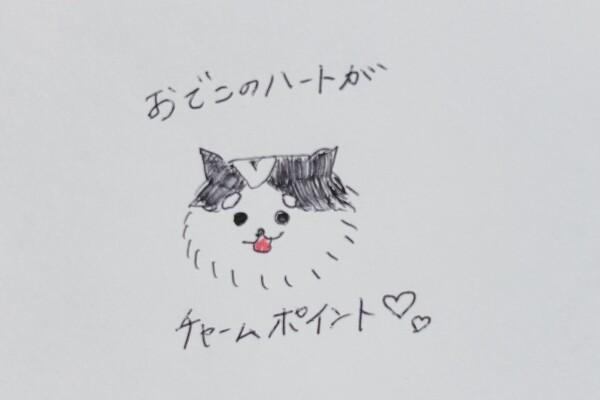 おでこのハートが
チャームポイント♡♡